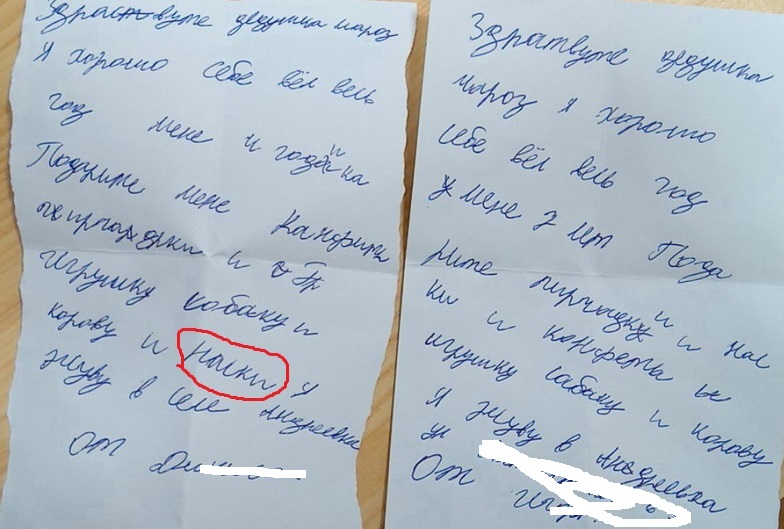 Здраствуте дедушка мароз
Я хорошо себе вёл весь
год мене и годика
Подарите мене Канфиты
и
игрушку собаку и
корову и наски я
живу в селе Андреевка
От
Здратвуте дедушка
мароз я хорошо
себе вёл весь год
у мене 7 лет Пода
рите пирчадку и и нас
ки и конфеты и
игрушку сабаку и корову
Я живу в Андреевка
От